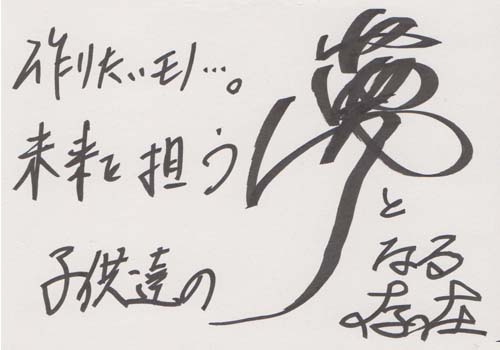 作りたいモノ…。
未来を担う
子供達の
夢
と
なる
存在